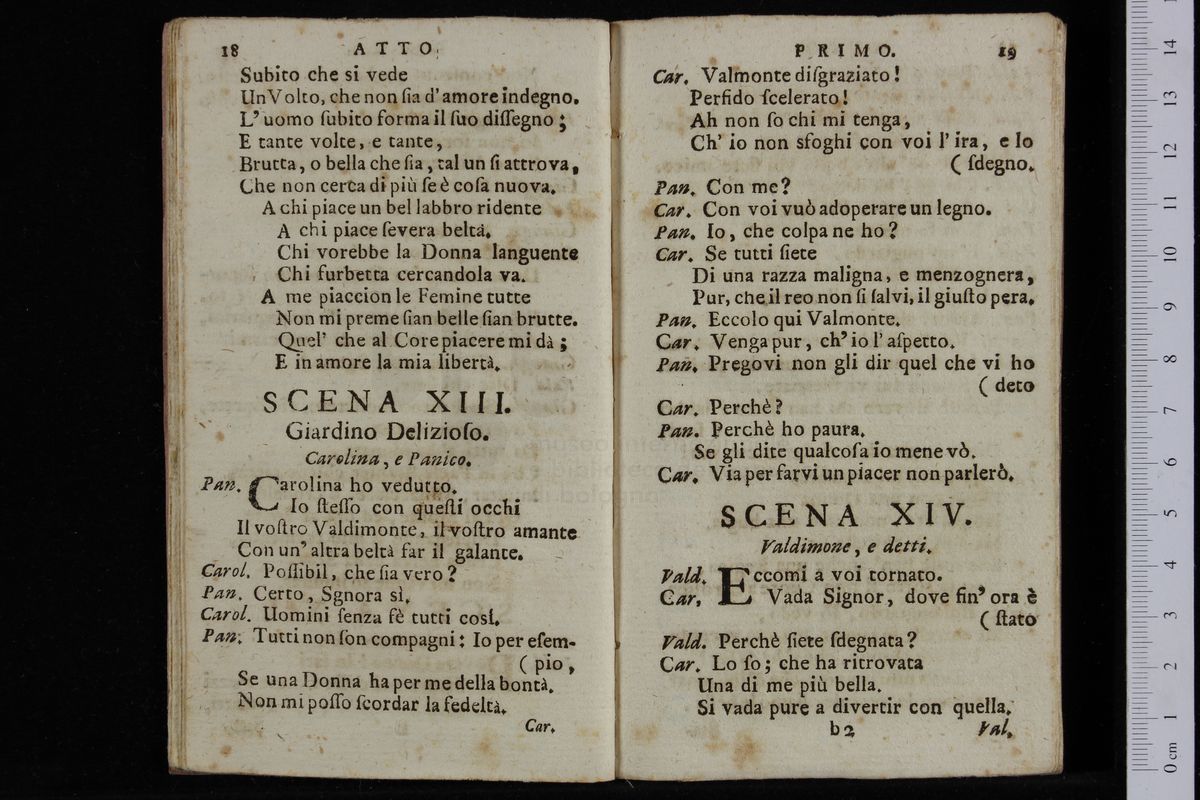 18 ATTO.
Subito che si vede
Un Volto, che non ſia d'amore indegno.
L'uomo ſubito forma il ſuo diſſegno;
E tante volte, e tante,
Brutta, o bella che ſia, tal un ſi attrova,
Che non cerca di più ſe è coſa nuova.
A chi piace un bel labbro ridente
A chi piace ſevera beltà.
Chi vorebbe la Donna languente
Chi furbetta cercandola va.
A me piaccion le Femine tutte
Non mi preme ſian belle ſian brutte.
Quel' che al Core piacere mi dà;
E in amore la mia libertà.
SCENA XIII.
Giardino Delizioſo.
Carolina, e Panico.
Pan. Carolina ho vedutto.
Io ſteſſo con queſti occhi
Il voſtro Valdimonte, il voſtro amante
Con un' altra beltà far il galante.
Carol. Poſſibil, che ſia vero?
Pan. Certo, Sgnora sì.
Carol. Uomini ſenza fè tutti così.
Pan. Tutti non ſon compagni: Io per eſem-
( pio,
Se una Donna ha per me della bontà.
Non mi poſſo ſcordar la fedeltà.
Car.
PRIMO. 19
Car. Valmonte diſgraziato!
Perfido ſcelerato!
Ah non ſo chi mi tenga,
Ch' io non sfoghi con voi l' ira, e lo
( ſdegno.
Pan. Con me?
Car. Con voi vuò adoperare un legno.
Pan. Io, che colpa ne ho?
Car. Se tutti ſiete
Di una razza maligna, e menzognera,
Pur, che il reo non ſi ſalvi, il giuſto pera.
Pan. Eccolo qui Valmonte.
Car. Venga pur, ch' io l' aſpetto.
Pan. Pregovi non gli dir quel che vi ho
( deto
Car. Perchè?
Pan. Perchè ho paura.
Se gli dite qualcoſa io mene vò.
Car. Via per farvi un piacer non parlerò.
SCENA XIV.
Valdimone, e detti.
Vald. Eccomi a voi tornato.
Car. Vada Signor, dove fin' ora è
( ſtato
Vald. Perchè ſiete ſdegnata?
Car. Lo ſo; che ha ritrovata
Una di me più bella.
Si vada pure a divertir con quella.
b2 Val.
0 cm 1 2 3 4 5 6 7 8 9 10 11 12 13 14